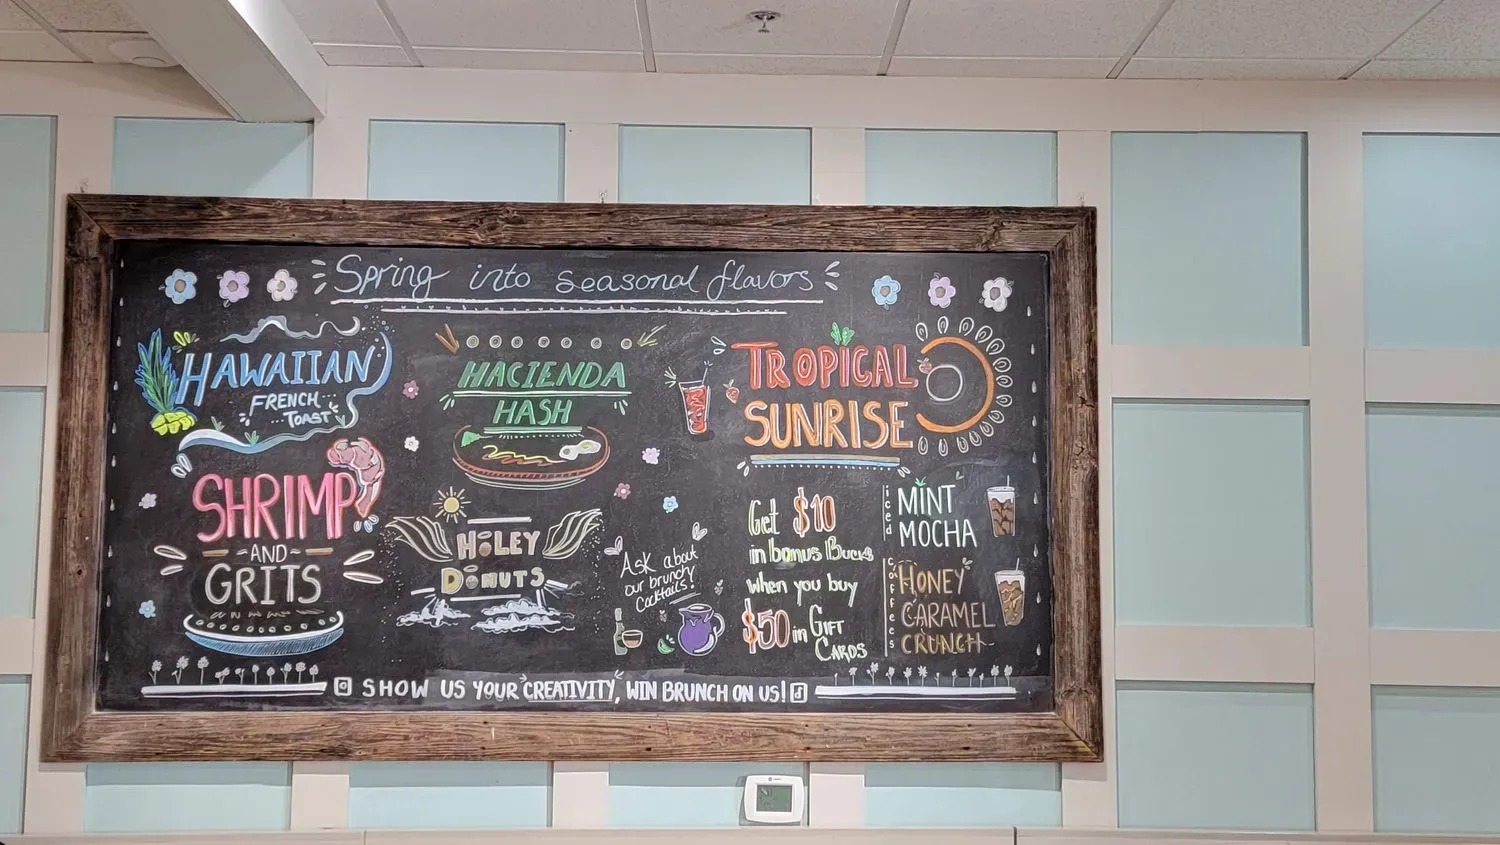 Spring into seasonal flavors
HAWAIIAN
FRENCH
TOAST
SHRIMP
AND
GRITS
HACIENDA
HASH
HOLEY
DONUTS
Ask about
our brunchy
Cocktails!
TROPICAL
SUNRISE
Get $10
in bonus Bucks
when you buy
$50 in GIFT
CARDS
iced
MINT
MOCHA
COFFEES
HONEY
CARAMEL
CRUNCH
SHOW US YOUR CREATIVITY, WIN BRUNCH ON US!